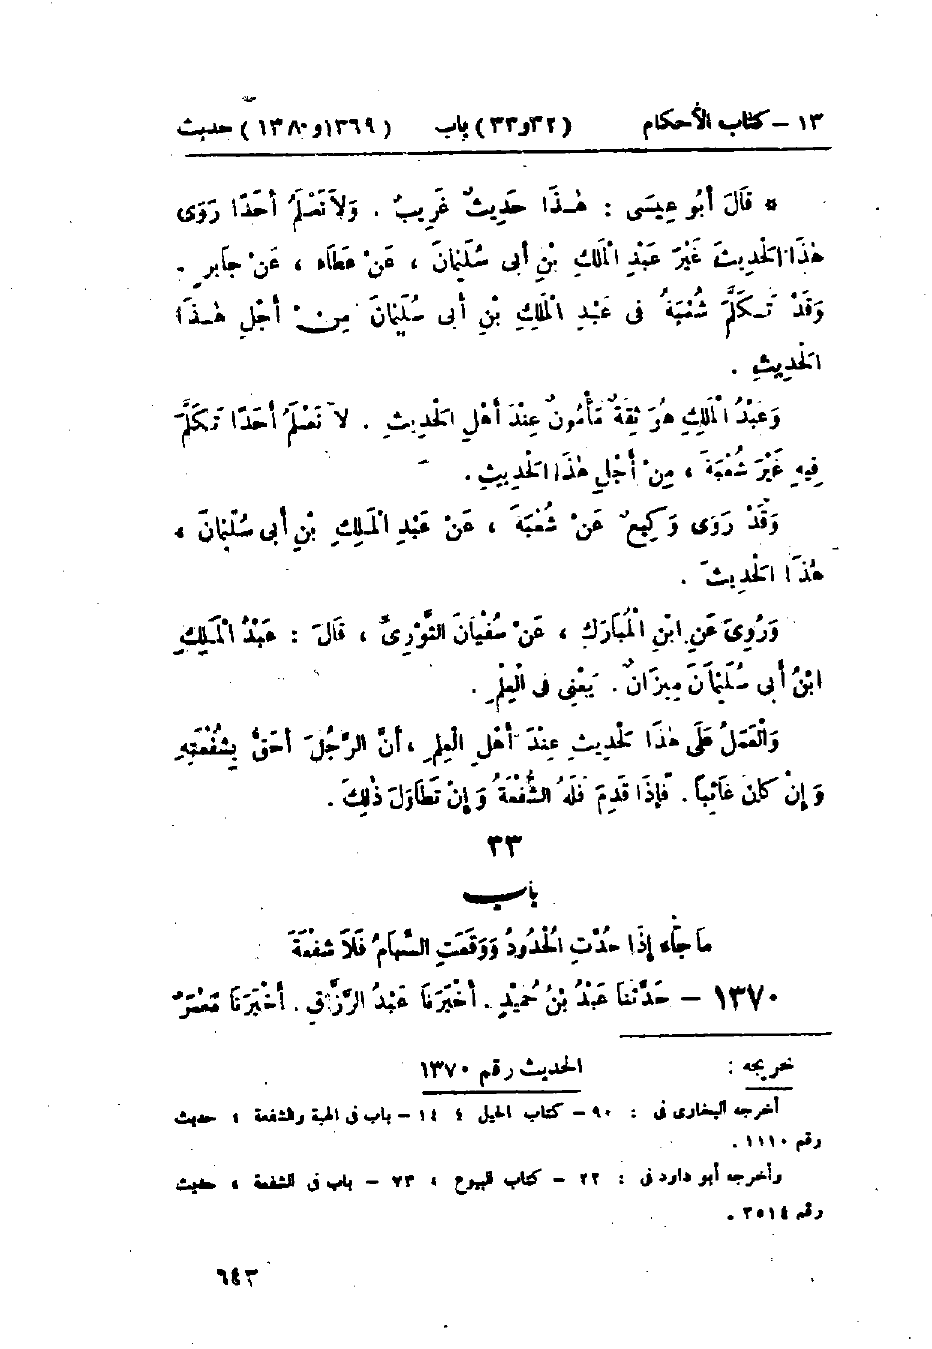 ١٣ – كتاب الأحكام (٣٢ و ٣٣) باب (١٣٦٩ و ١٣٨٠) حديث
* قَالَ أَبُو عِيسَى : هٰذَا حَدِيثٌ غَرِيبٌ . وَلاَ نَعْلَمُ أَحَدًا رَوَى
هٰذَا الْحَدِيثَ غَيْرَ عَبْدِ الْمَلِكِ بْنِ أَبِى سُلَيْمَانَ ، عَنْ عَطَاءٍ ، عَنْ جَابِرٍ .
وَقَدْ تَكَلَّمَ شُعْبَةُ فِى عَبْدِ الْمَلِكِ بْنِ أَبِى سُلَيْمَانَ مِنْ أَجْلِ هٰذَا
الْحَدِيثِ .
وَعَبْدُ الْمَلِكِ هُوَ ثِقَةٌ مَأْمُونٌ عِنْدَ أَهْلِ الْحَدِيثِ . لاَ نَعْلَمُ أَحَدًا تَكَلَّمَ
فِيهِ غَيْرَ شُعْبَةَ ، مِنْ أَجْلِ هٰذَا الْحَدِيثِ .
وَقَدْ رَوَى وَكِيعٌ عَنْ شُعْبَةَ ، عَنْ عَبْدِ الْمَلِكِ بْنِ أَبِى سُلَيْمَانَ ،
هٰذَا الْحَدِيثَ .
وَرُوِىَ عَنِ ابْنِ الْمُبَارَكِ ، عَنْ سُفْيَانَ الثَّوْرِىِّ ، قَالَ : عَبْدُ الْمَلِكِ
ابْنُ أَبِى سُلَيْمَانَ مِيزَانٌ . يَعْنِى فِى الْعِلْمِ .
وَالْعَمَلُ عَلَى هٰذَا الْحَدِيثِ عِنْدَ أَهْلِ الْعِلْمِ ، أَنَّ الرَّجُلَ أَحَقُّ بِشُفْعَتِهِ
وَإِنْ كَانَ غَائِبًا . فَإِذَا قَدِمَ فَلَهُ الشُّفْعَةُ وَإِنْ تَطَاوَلَ ذٰلِكَ .
٣٣
باب
مَا جَاءَ إِذَا حُدَّتِ الْحُدُودُ وَوَقَعَتِ السِّهَامُ فَلاَ شُفْعَةَ
١٣٧٠ – حَدَّثَنَا عَبْدُ بْنُ حُمَيْدٍ . أَخْبَرَنَا عَبْدُ الرَّزَّاقِ . أَخْبَرَنَا مَعْمَرٌ
تخريجه : الحديث رقم ١٣٧٠
أخرجه البخارى فى : ٩٠ – كتاب الحيل ؛ ١٤ – باب فى الهبة والشفعة ، حديث
رقم ١١١٠ .
وأخرجه أبو داود فى : ٢٢ – كتاب البيوع ، ٧٣ – باب فى الشفعة ، حديث
رقم ٣٥١٤ .
٦٤٣